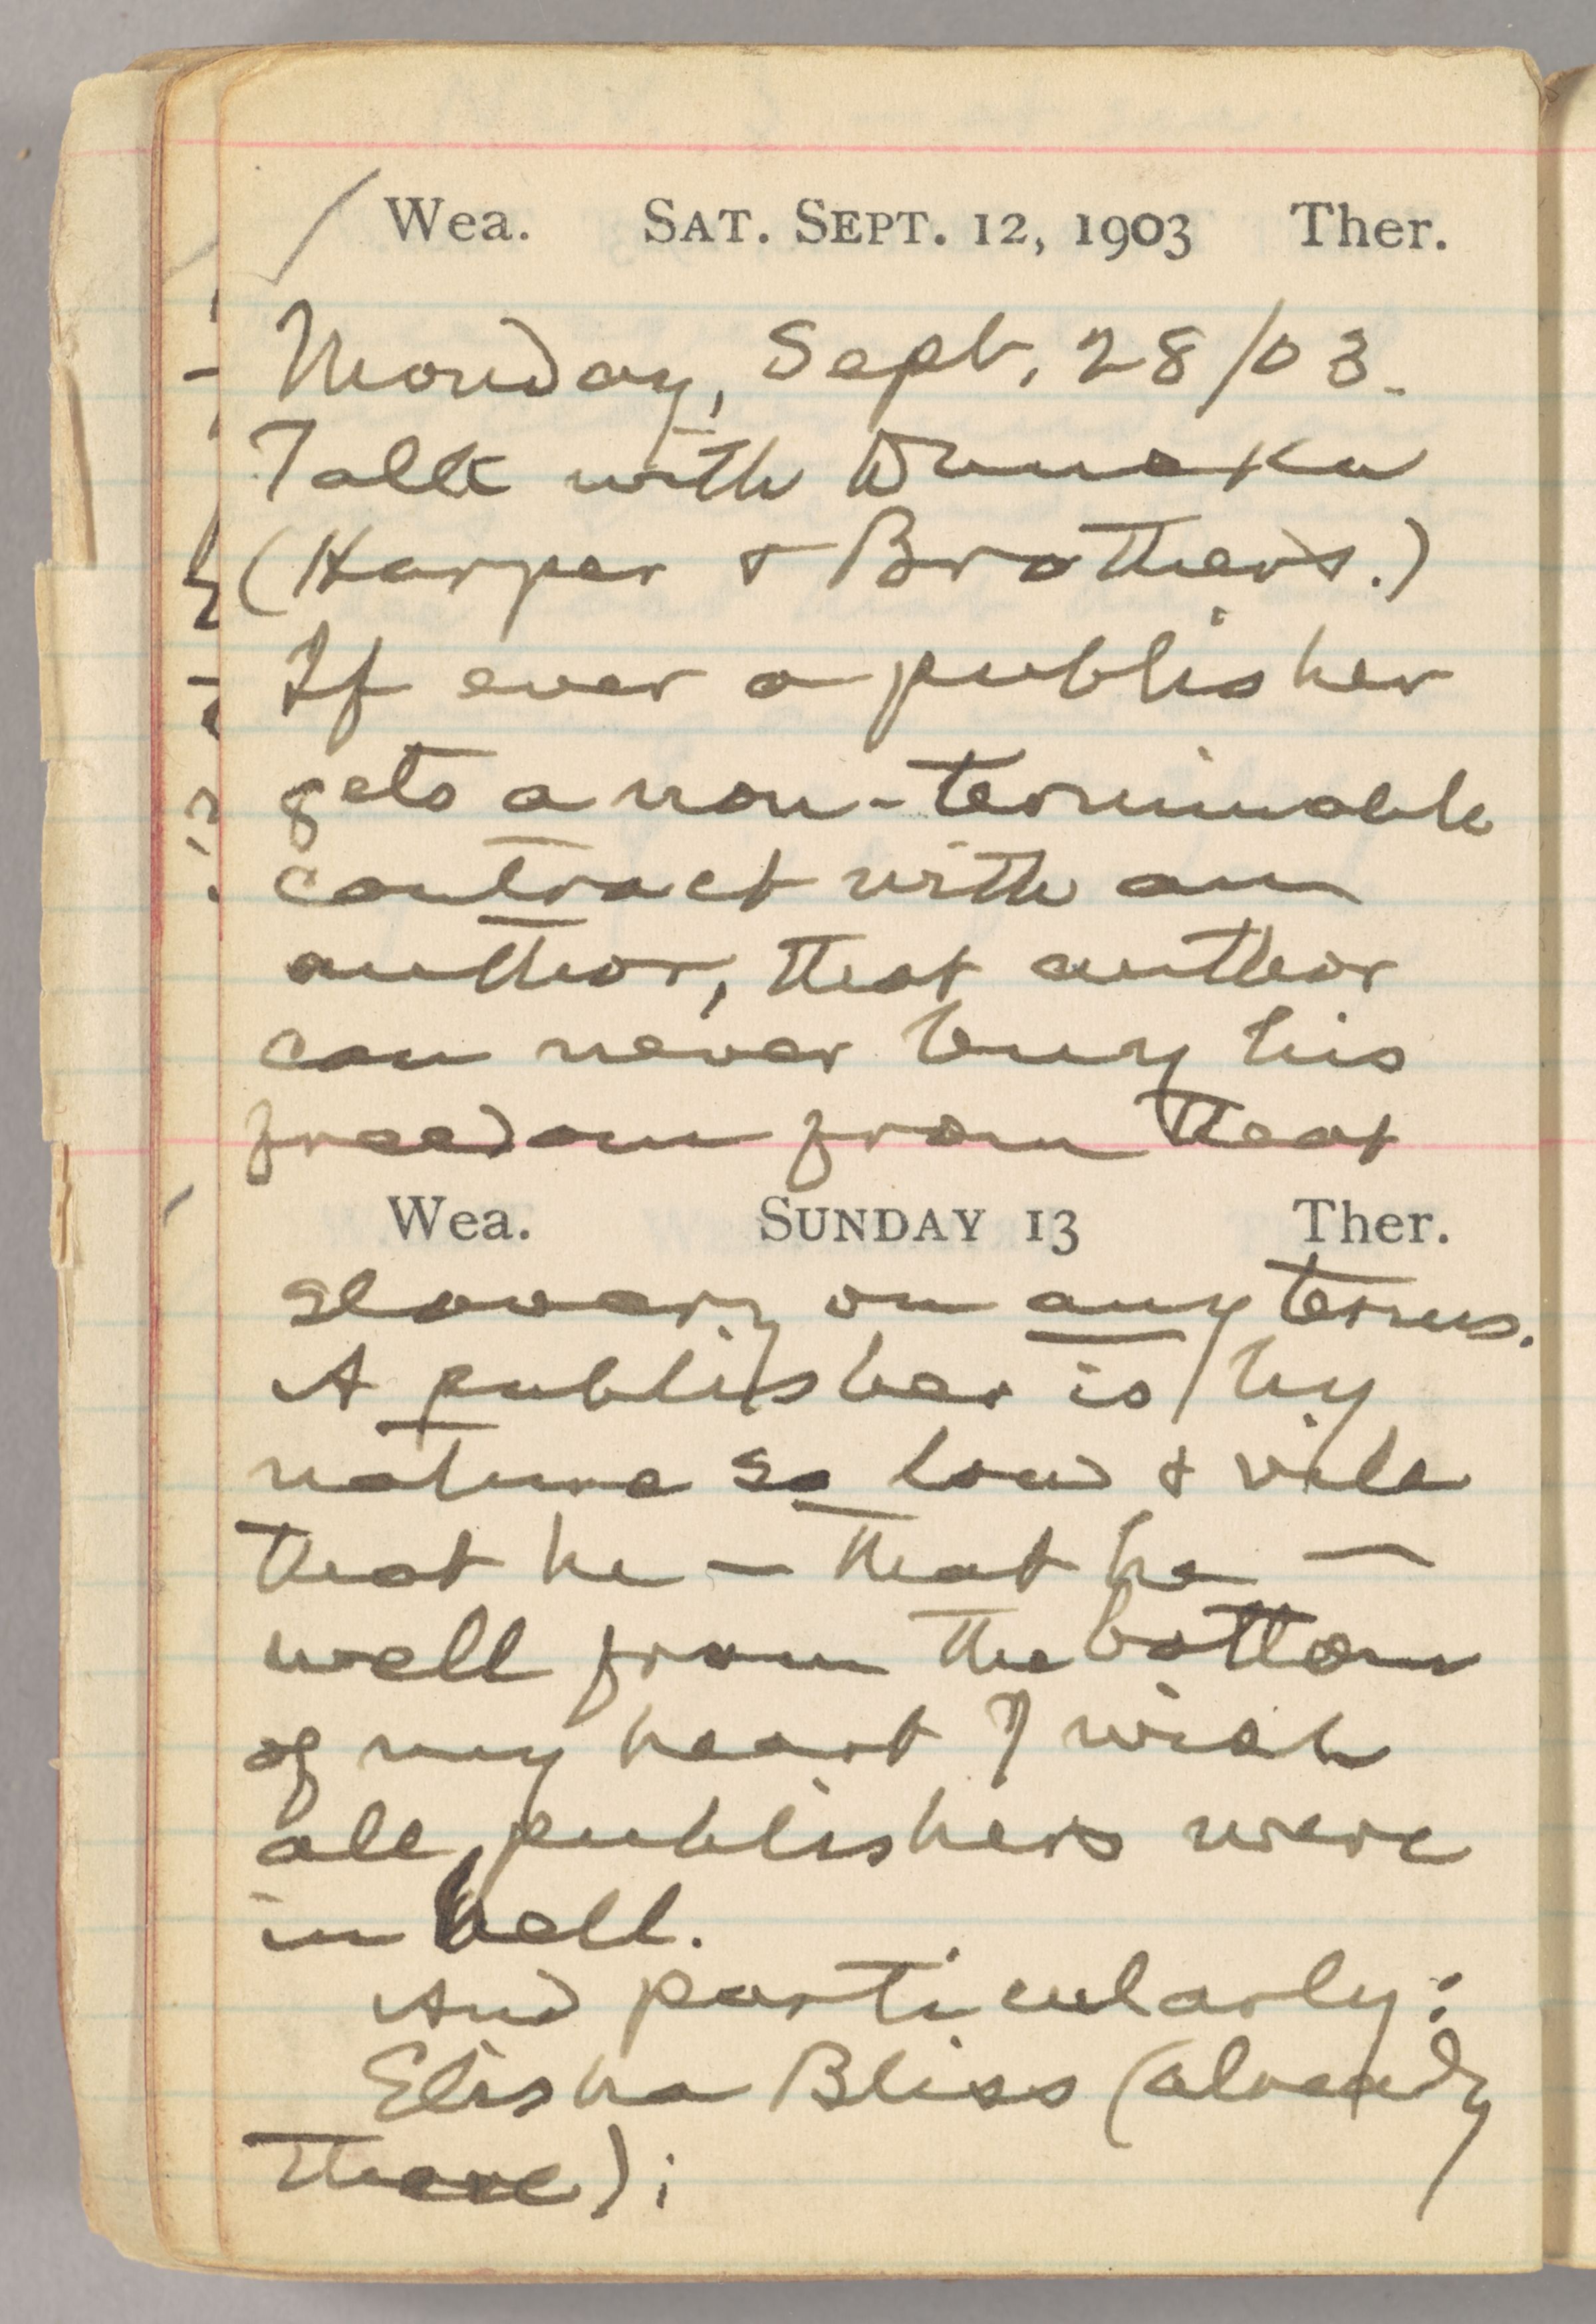 Wea. SAT. SEPT. 12, 1903 Ther.
Monday, Sept. 28/03.
Talk with Duneka
(Harper & Brothers.)
If ever a publisher
gets a non-terminable
contract with an
author, that author
can never buy his
freedom from that
Wea. SUNDAY 13 Ther.
slavery on any terms.
A publisher is by
nature so low & vile
that he — that he —
well from the bottom
of my heart I wish
all publishers were
in hell.
And particularly:
Elisha Bliss (already
there);